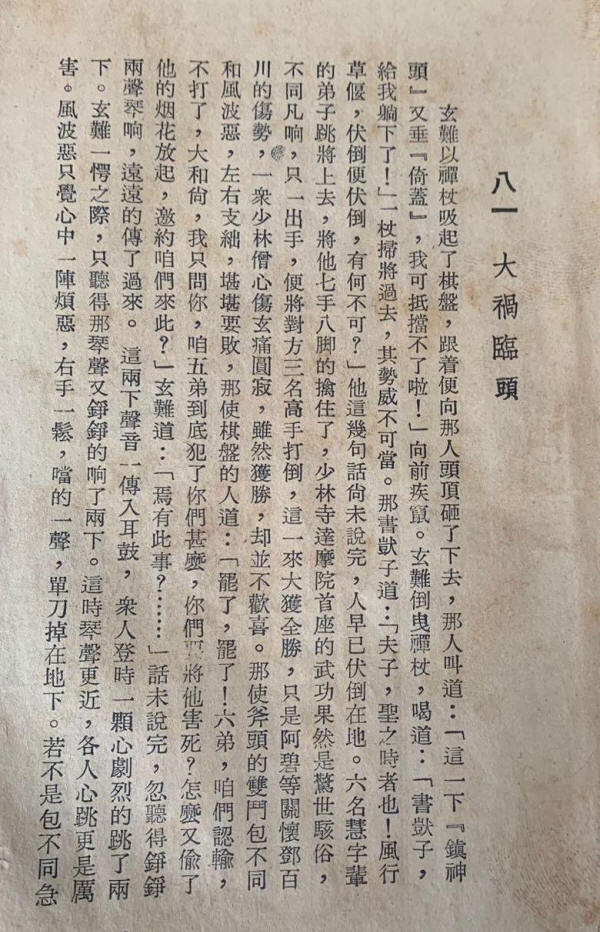 八一 大禍臨頭
玄難以禪杖吸起了棋盤，跟着便向那人頭頂砸了下去，那人叫道：「這一下『鎮神
頭』又垂『倚蓋』，我可抵擋不了啦！」向前疾竄。玄難倒曳禪杖，喝道：「書獃子，
給我躺下了！」一杖掃將過去，其勢威不可當。那書獃子道：「夫子，聖之時者也！風行
草偃，伏倒便伏倒，有何不可？」他這幾句話尙未說完，人早已伏倒在地。六名慧字輩
的弟子跳將上去，將他七手八脚的擒住了，少林寺達摩院首座的武功果然是驚世駭俗，
不同凡响，只一出手，便將對方三名高手打倒，這一來大獲全勝，只是阿碧等關懷鄧百
川的傷勢，一衆少林僧心傷玄痛圓寂，雖然獲勝，却並不歡喜。那使斧頭的雙鬥包不同
和風波惡，左右支絀，堪堪要敗，那使棋盤的人道：「罷了，罷了！六弟，咱們認輸，
不打了，大和尙，我只問你，咱五弟到底犯了你們甚麼，你們將他害死？怎麼又偸了
他的烟花放起，邀約咱們來此？」玄難道：「焉有此事？……」話未說完，忽聽得錚錚
兩聲琴响，遠遠的傳了過來。這兩下聲音一傳入耳鼓，衆人登時一顆心劇烈的跳了兩
下。玄難一愕之際，只聽得那琴聲又錚錚的响了兩下。這時琴聲更近，各人心跳更是厲
害。風波惡只覺心中一陣煩惡，右手一鬆，噹的一聲，單刀掉在地下。若不是包不同急